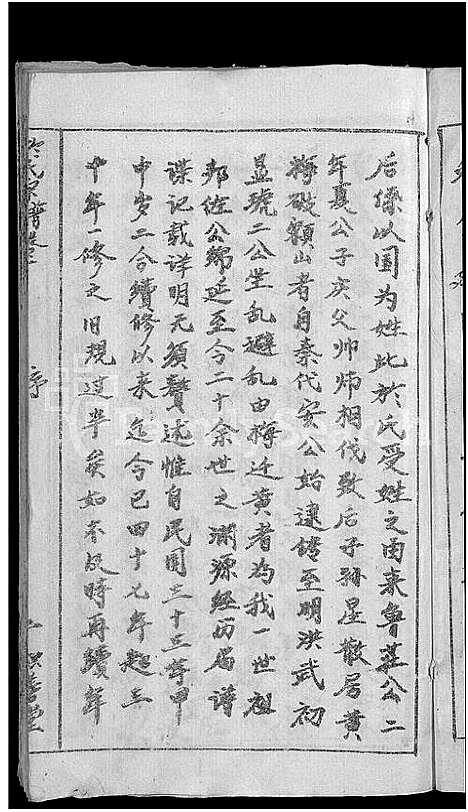 后缘以国为姓此於氏受姓之由来鲁莊公二
年夏公子庆父帅师相伐敗后子孙星散居黄
梅破额山者自秦代安公始逮传至明洪武初
显琥二公坐乱避乱由梅迁黄者为我一世祖
邦佐公綿延至今二十余世之渊源经历屆谱
谍记载详明无须贅述惟自民国三十三年甲
申岁二合續修以来迄今已四十七年超三
十年一修之旧規过半矣如不及時再續年
於氏宗譜卷
序